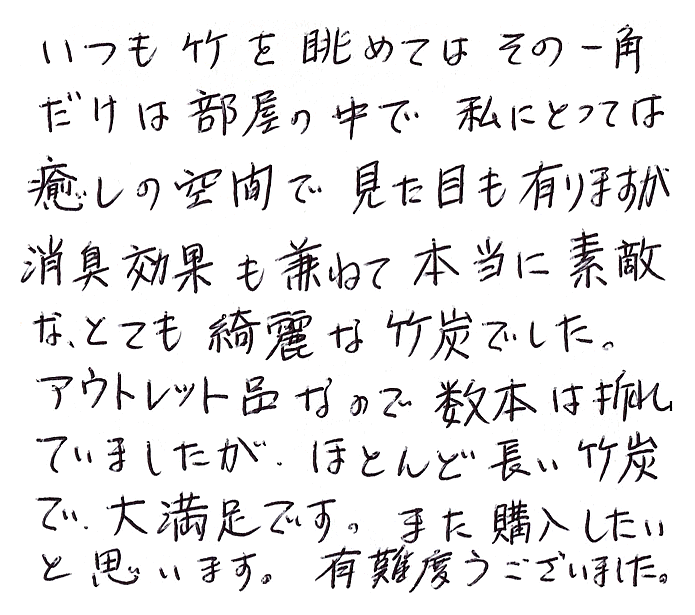 いつも竹を眺めてはその一角
だけは部屋の中で私にとっては
癒しの空間で見た目も有りますが
消臭効果も兼ねて本当に素敵
な、とても綺麗な竹炭でした。
アウトレット品なので数本は折れ
ていましたが、ほとんど長い竹炭
で、大満足です。また購入したい
と思います。有難度うございました。